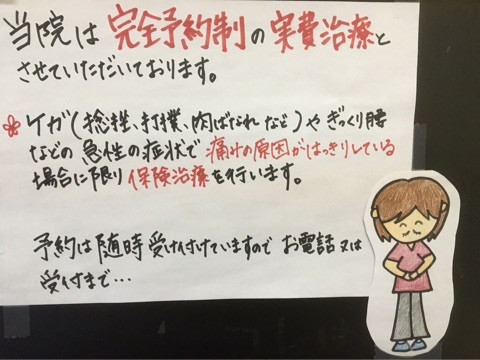 当院は 完全予約制の実費治療と
させていただいております。
ケガ(捻挫、打撲、肉ばなれ など)や ぎっくり腰
などの 急性の症状で 痛みの原因がはっきりしている
場合に限り 保険治療を行います。
予約は 随時 受け付けていますので お電話 又は
受付まで…